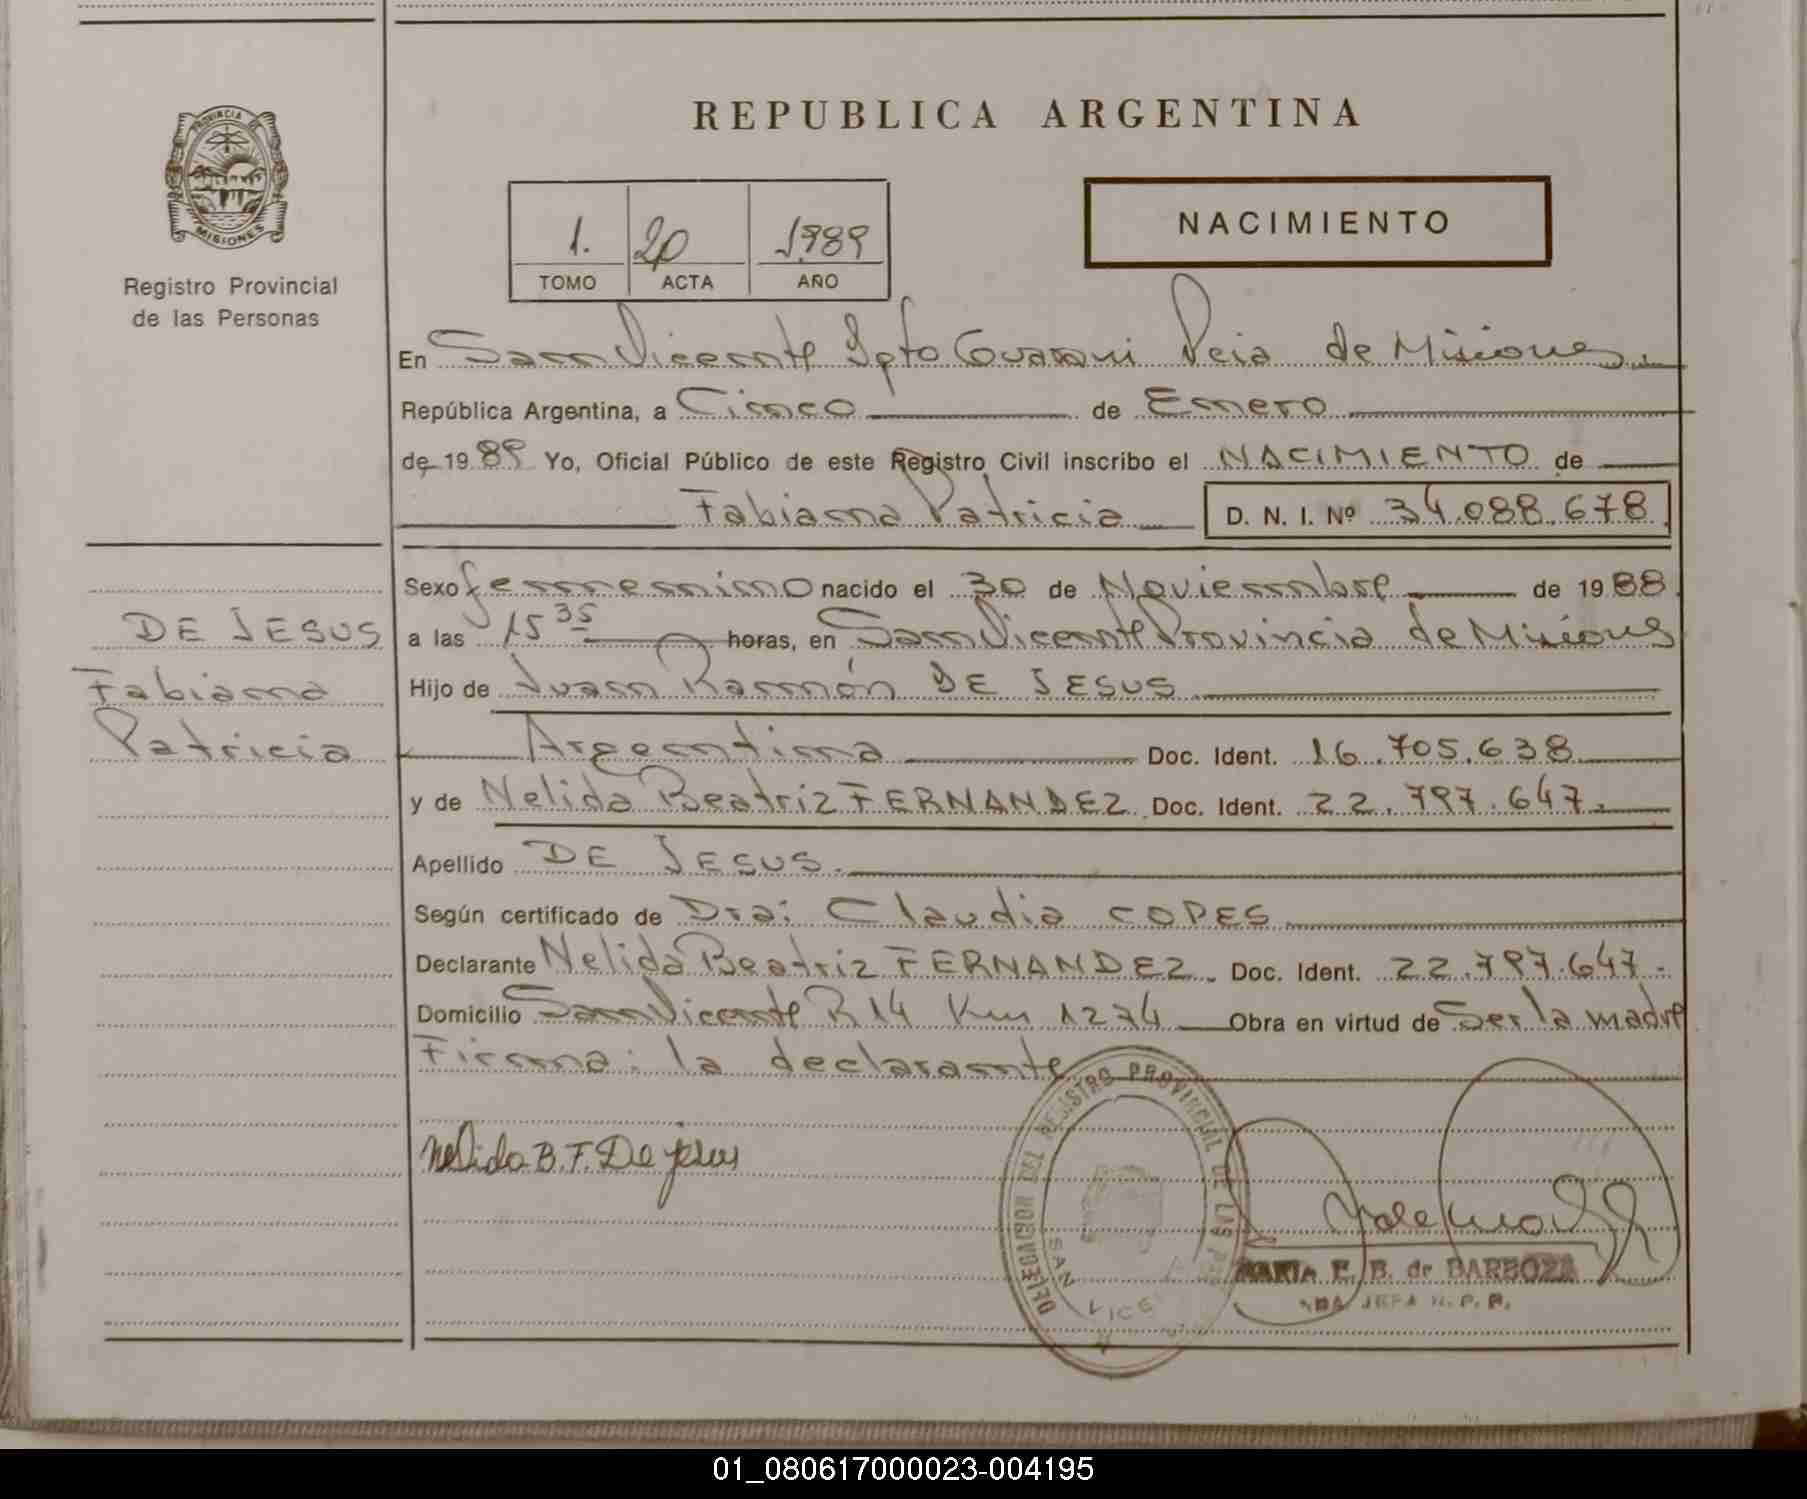 PROVINCIA DE
MISIONES
Registro Provincial
de las Personas
REPUBLICA ARGENTINA
1. 20 1989
TOMO ACTA AÑO
NACIMIENTO
En San Vicente Dpto Guarani Pcia de Misiones.
República Argentina, a Cinco de Enero
de 1989 Yo, Oficial Público de este Registro Civil inscribo el NACIMIENTO de
Fabiana Patricia D. N. I. Nº 34.088.678
Sexo femenino nacido el 30 de Noviembre de 1988
a las 15 35 horas, en San Vicente Provincia de Misiones
Hijo de Juan Ramón DE JESUS
Argentina Doc. Ident. 16.705.638
y de Nelida Beatriz FERNANDEZ Doc. Ident. 22.797.647.
Apellido DE JESUS.
Según certificado de Dra: Claudia COPES
Declarante Nelida Beatriz FERNANDEZ. Doc. Ident. 22.797.647.
Domicilio San Vicente R 14 Km 1274 Obra en virtud de Ser la madre
Firma: la declarante
DE JESUS
Fabiana
Patricia
Nelida B. F. De jesus
DELEGACION DEL REGISTRO PROVINCIAL DE LAS
SAN VICENTE
MARIA E. B. de BARBOZA
JEFA R. P. P.
01_080617000023-004195